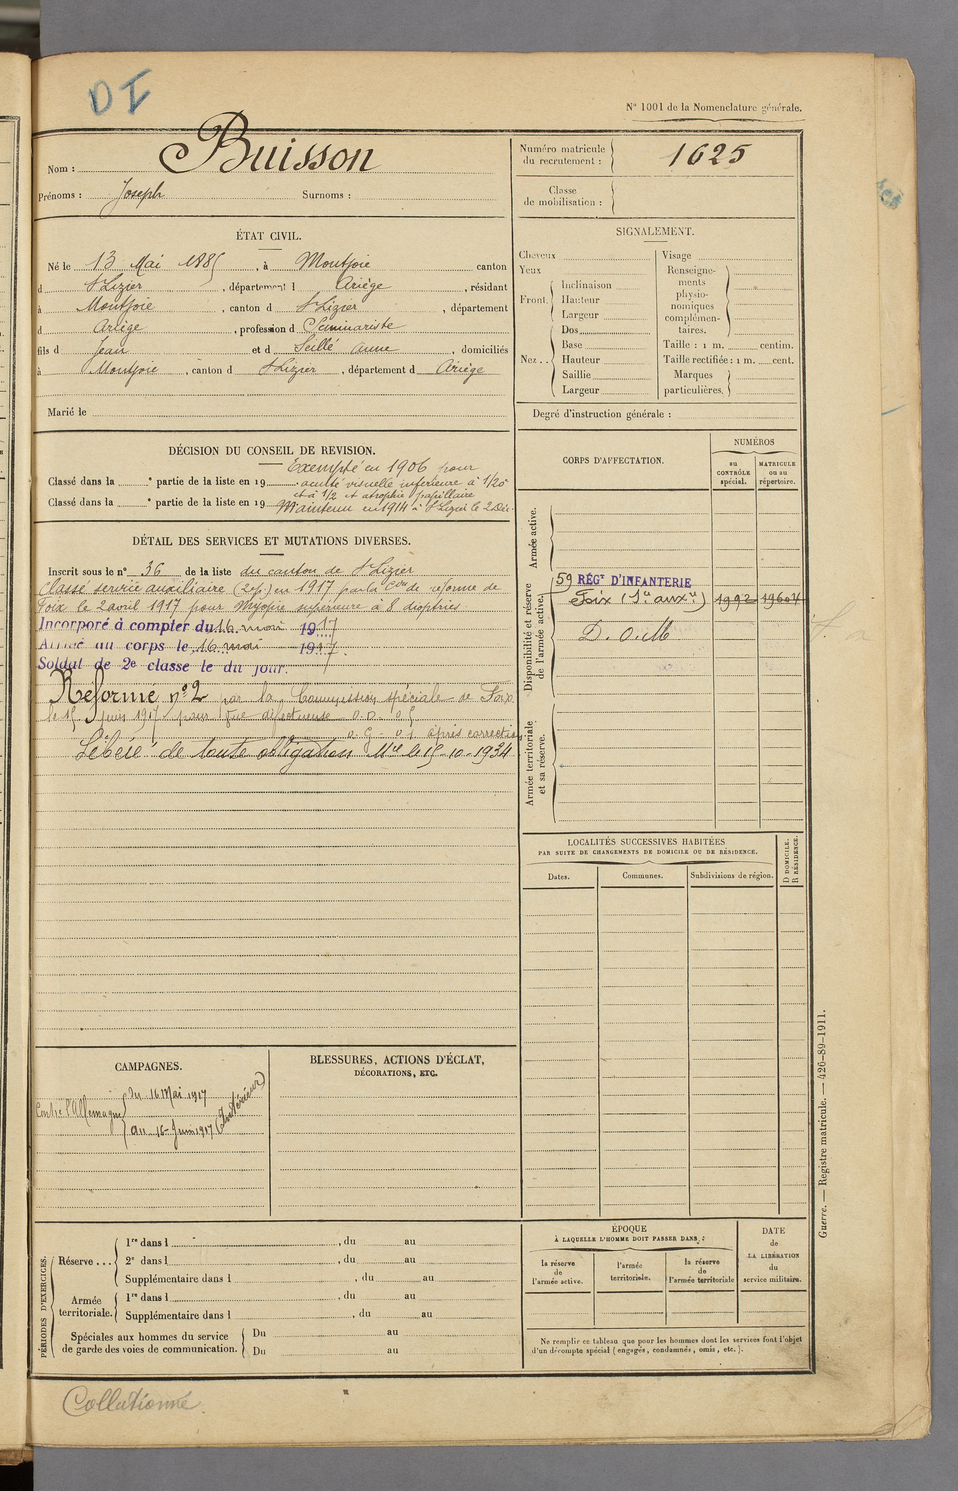 DI
N° 1001 de la Nomenclature générale.
Nom : Buisson
Prénoms : Joseph Surnoms :
Numéro matricule du recrutement : 1625
Classe de mobilisation :
ÉTAT CIVIL.
Né le 13 Mai 1885, à Montjoie canton
d St Lizier, département d Ariège, résidant
à Montjoie, canton d St Lizier, département
d Ariège, profession d Séminariste
fils d Jean et d Seillé Anne, domiciliés
à Montjoie, canton d St Lizier, département d Ariège
Marié le
SIGNALEMENT.
Cheveux
Yeux
Front. Inclinaison
Hauteur
Largeur
Nez.. Dos
Base
Hauteur
Saillie
Largeur
Visage
Renseignements physionomiques complémentaires.
Taille : 1 m. centim.
Taille rectifiée : 1 m. cent.
Marques particulières.
Degré d'instruction générale :
DÉCISION DU CONSEIL DE REVISION.
Exempté en 1906 pour
Classé dans la e partie de la liste en 19 acuité visuelle inférieure à 1/20e
et à 1/2 et atrophie papillaire
Classé dans la e partie de la liste en 19 Maintenu en 1914 à St Lizier le 2 Déc.
DÉTAIL DES SERVICES ET MUTATIONS DIVERSES.
Inscrit sous le n° 36 de la liste du canton de St Lizier
Classé service auxiliaire (2e p.) en 1917 par la Con de réforme de
Foix le 2 avril 1917 pour Myopie supérieure à 8 dioptries
Incorporé à compter du 16 mai 1917
Arrivé au corps le 16 mai 1917.
Soldat de 2e classe le du jour.
Réformé n° 2 par la Commission spéciale de Foix
le 15 juin 1917 pour Vue défectueuse O.D. 0.5
O.G. 0.1 après correction
Libéré de toute obligation Mre le 15-10-1934
CORPS D'AFFECTATION.
NUMÉROS
au CONTRÔLE spécial.
MATRICULE ou au répertoire.
Armée active.
Disponibilité et réserve de l'armée active.
59 RÉGt D'INFANTERIE
Foix (Sce auxre) 1992 19604
D. O. M
Armée territoriale et sa réserve.
LOCALITÉS SUCCESSIVES HABITÉES
PAR SUITE DE CHANGEMENTS DE DOMICILE OU DE RÉSIDENCE.
D DOMICILE.
R RÉSIDENCE.
Dates. Communes. Subdivisions de région.
CAMPAGNES.
Contre l'Allemagne du 16 Mai 1917
au 16 Juin 1917 (Intérieur)
BLESSURES, ACTIONS D'ÉCLAT,
DÉCORATIONS, ETC.
PÉRIODES D'EXERCICES.
Réserve... 1re dans l , du au
2e dans l , du au
Supplémentaire dans l , du au
Armée territoriale. 1re dans l , du au
Supplémentaire dans l , du au
Spéciales aux hommes du service de garde des voies de communication. Du au
Du au
ÉPOQUE
À LAQUELLE L'HOMME DOIT PASSER DANS :
la réserve de l'armée active.
l'armée territoriale.
la réserve de l'armée territoriale
DATE de LA LIBÉRATION du service militaire.
Ne remplir ce tableau que pour les hommes dont les services font l'objet
d'un décompte spécial (engagés, condamnés, omis, etc.).
Guerre. — Registre matricule. — 426-89-1911.
Collationné